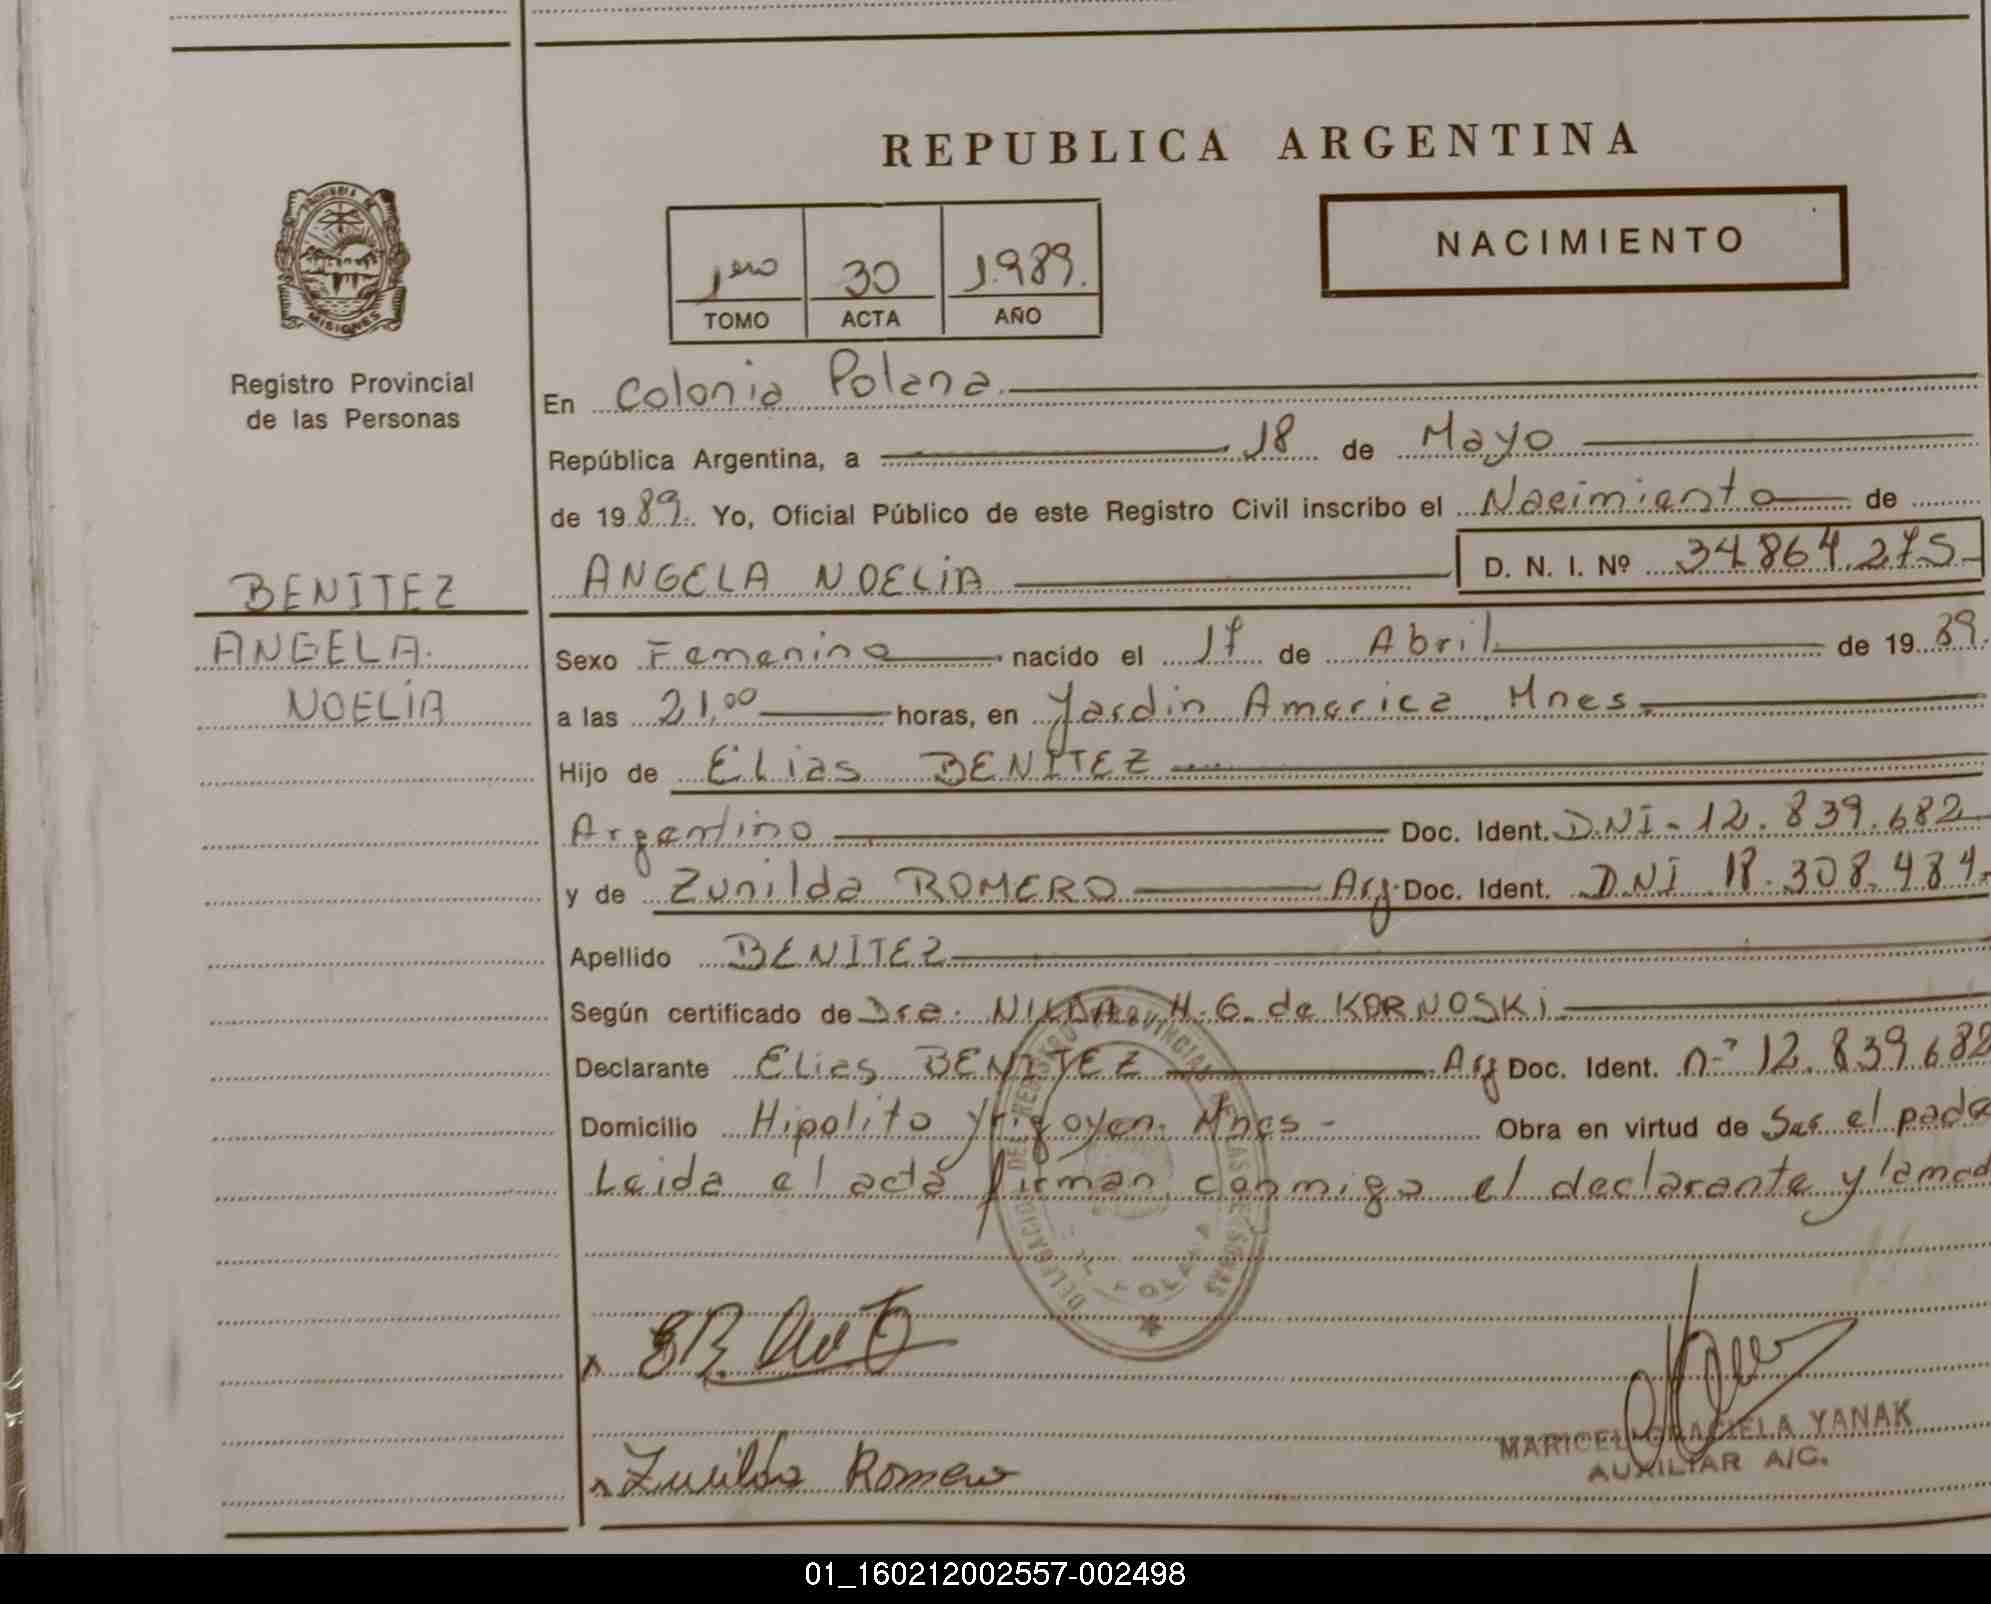 REPUBLICA ARGENTINA
NACIMIENTO
1ero 30 1.989.
TOMO ACTA AÑO
PROVINCIA DE
MISIONES
Registro Provincial
de las Personas
BENITEZ
ANGELA
NOELIA
En Colonia Polana
República Argentina, a 18 de Mayo
de 1989. Yo, Oficial Público de este Registro Civil inscribo el Nacimiento de
ANGELA NOELIA D. N. I. Nº 34.864.275
Sexo Femenino nacido el 17 de Abril de 1989.
a las 21,00 horas, en Jardin America Mnes.
Hijo de Elias BENITEZ
Argentino Doc. Ident. DNI - 12.839.682
y de Zunilda ROMERO Arg. Doc. Ident. DNI 18.308.484.
Apellido BENITEZ
Según certificado de Dra. NILDA H. G. de KORNOSKI
Declarante Elias BENITEZ Arg Doc. Ident. nº 12.839.682
Domicilio Hipolito Yrigoyen. Mnes - Obra en virtud de Ser el padre
Leida el acta firman conmigo el declarante y la mad
DELEGACION DEL REGISTRO PROVINCIAL DE LAS PERSONAS
Zunilda Romero
MARICEL GRACIELA YANAK
AUXILIAR A/C.
01_160212002557-002498